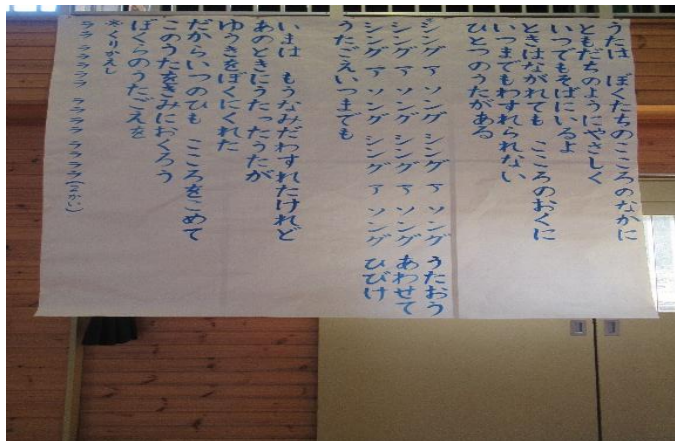 うたは ぼくたちのこころのなかに
ともだちのようにやさしく
いつでもそばにいるよ
ときはながれても こころのおくに
いつまでもわすれられない
ひとつのうたがある
シング ア ソング シング ア ソング うたおう
シング ア ソング シング ア ソング あわせて
シング ア ソング シング ア ソング ひびけ
うたごえいつまでも
いまは もうなみだわすれたけれど
あのときにうたったうたが
ゆうきをぼくにくれた
だからいつのひも こころをこめて
このうたをきみにおくろう
ぼくらのうたごえを
*くりかえし
ララ ララララ ララララ ラララ(2かい)